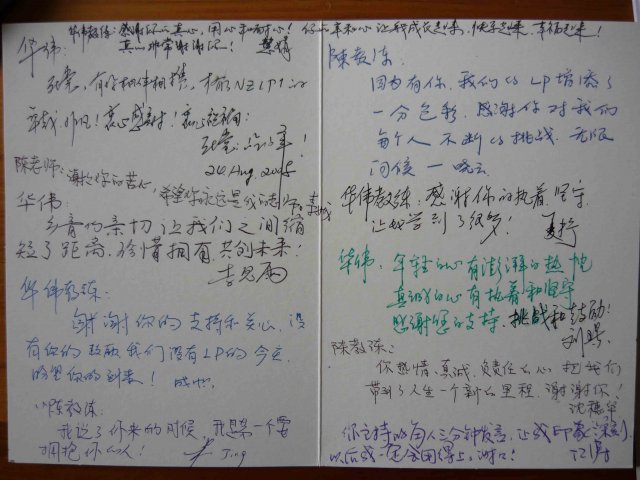 华伟教练：感谢你的真心，用心和耐心！你的真和心让我成长起来，快乐起来，幸福起来！
真心非常谢谢你！
华伟：
有你相伴相携，才有NZLP1的
幸哉！感谢！
24 Aug. 2005
陈老师：谢谢你的苦心，希望你永远是我的老师
华伟：
乡音的亲切让我们之间缩
短了距离，珍惜拥有，共创未来！
李思雨
华伟教练：
谢谢你的支持和关心，没
有你的贡献我们没有LP的今天，
你的到来！
陈教练：
我迟了你来的时候，我想第一个要
拥抱你的人！
Jing
陈教练
因为有你，我们的LP增添了
一分色彩，感谢你对我们
每个人不断的挑战，无限
问候 一 晓云
华伟教练：感谢你的执着、坚守，
让我学到了很多！
华伟：年轻的心有澎湃的热忱
真诚的心有执着和坚守
感谢您的支持、挑战和鼓励！
陈教练：
你热情、真诚、负责任的心把我们
带到了人生一个新的里程，谢谢你！
你主持的每人三分钟发言，让我印象深刻，
以后我一定会用得上，谢谢！